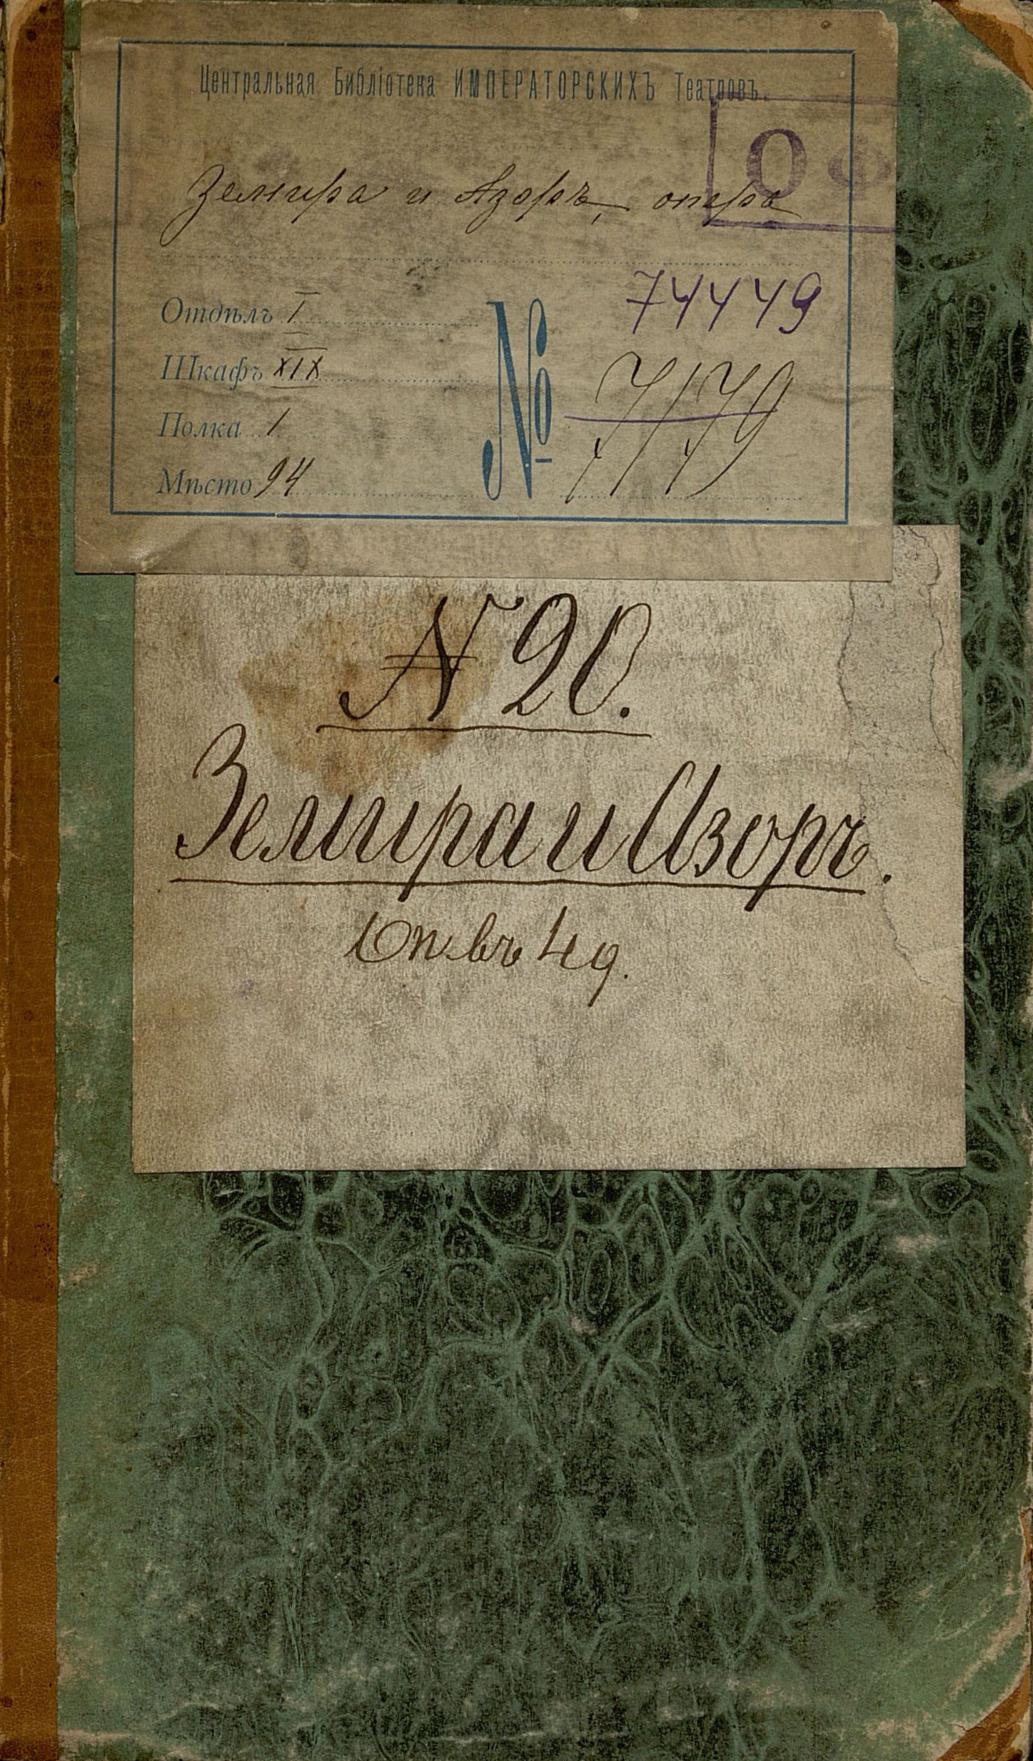 Центральная Библіотека ИМПЕРАТОРСКИХЪ Театровъ.
ОФ
Земира и Азоръ, опера
74449
Отдѣлъ I
Шкафъ XIX
№ 7179
Полка 1
Мѣсто 94
N 20.
Земира и Азоръ.
Оп. въ 4 д.